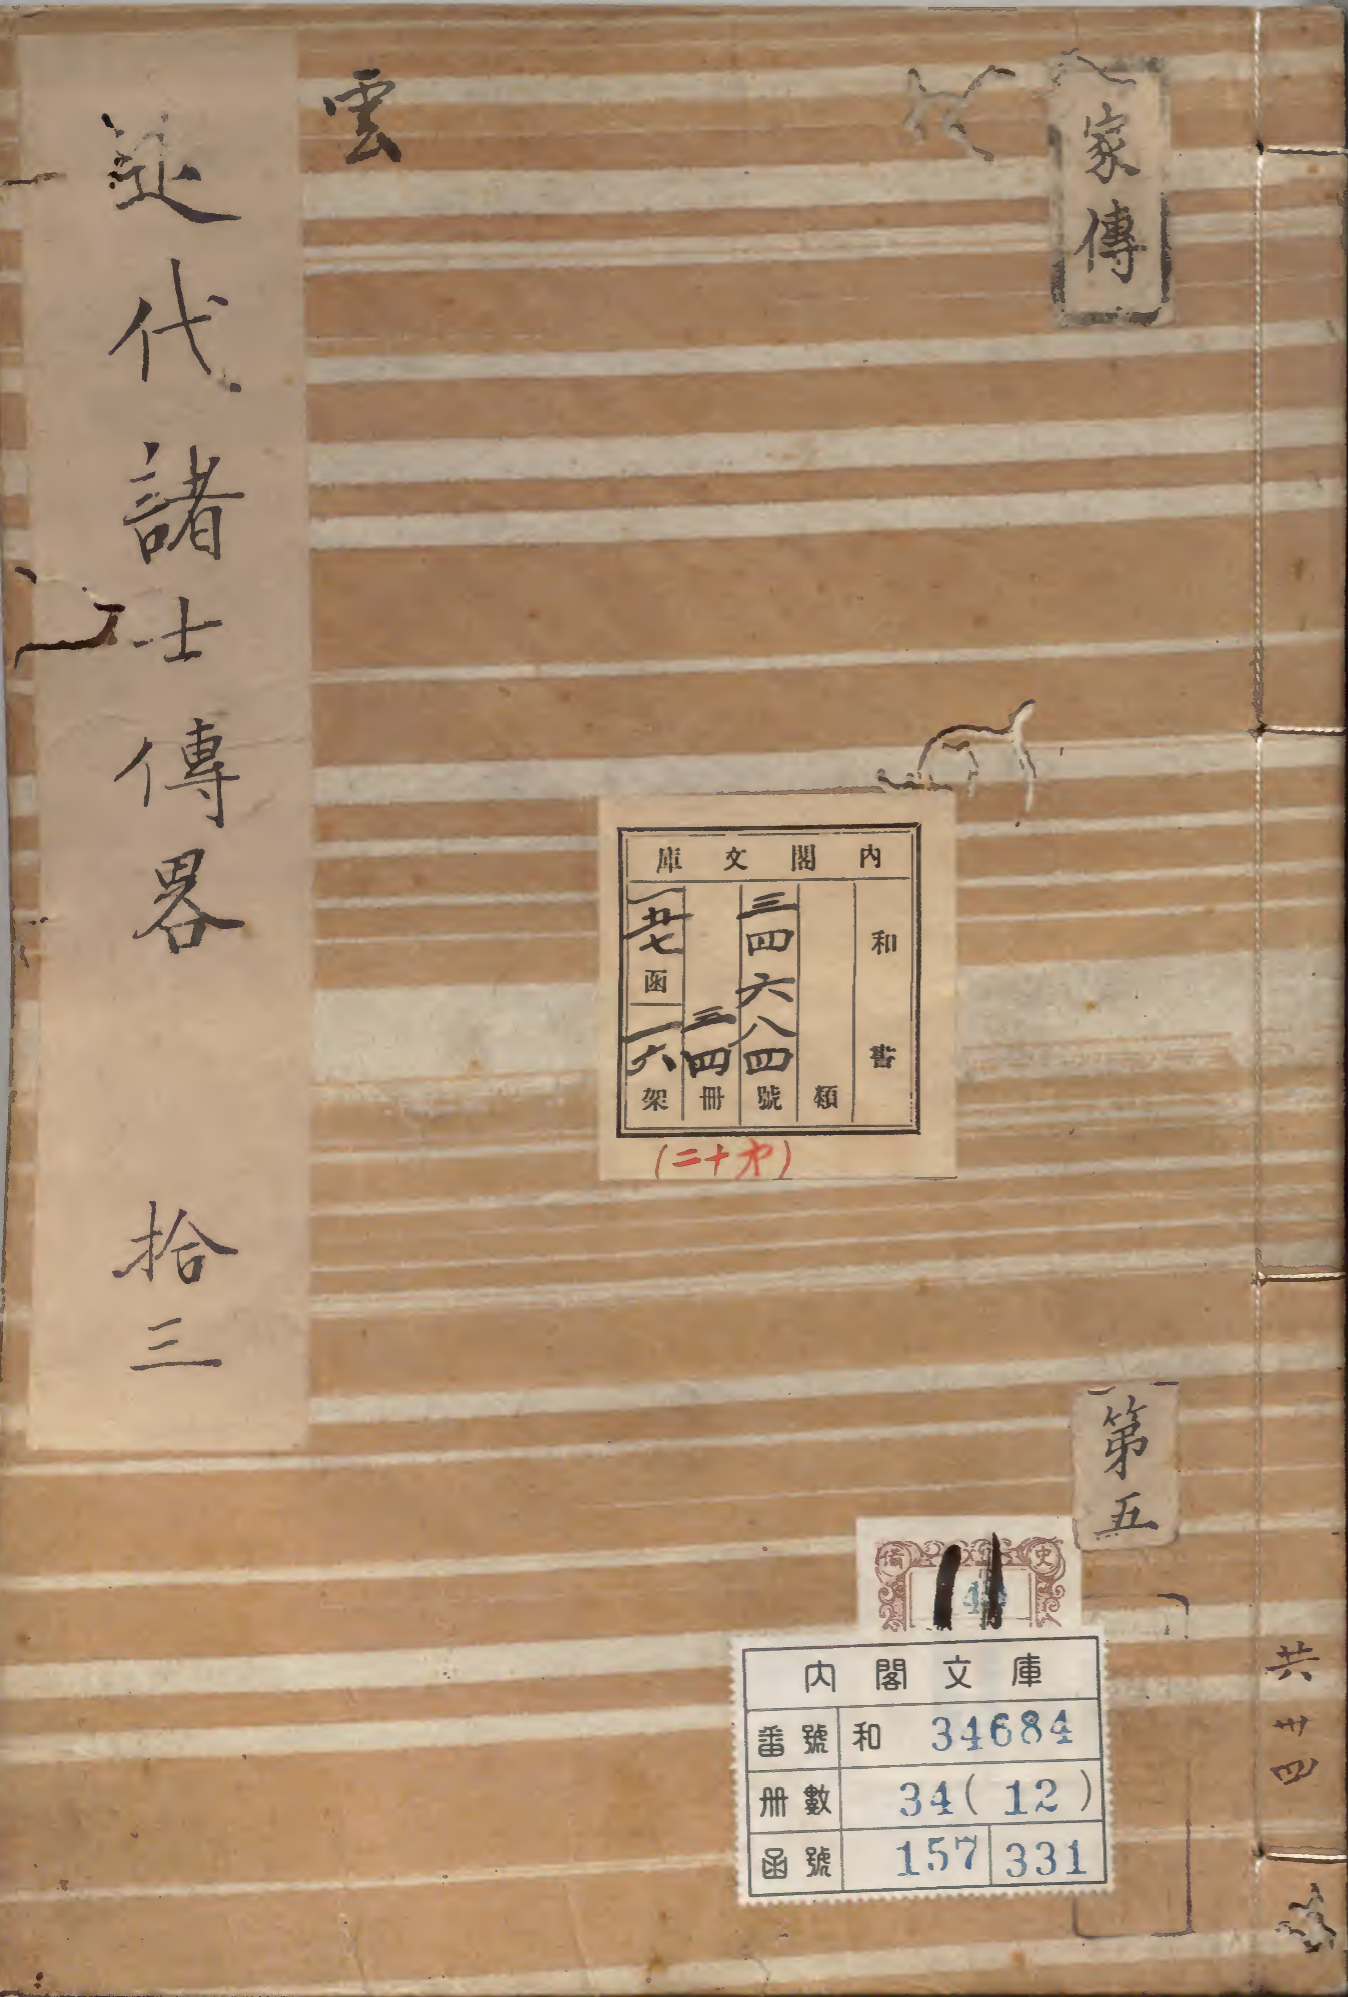 家傳
雲
近代諸士傳畧 拾三
内閣文庫
和書
類
三四六八四號
三四冊
一五七函
一六架
(第十二)
第五
内閣文庫
番號 和 34684
冊數 34(12)
函號 157 331
共卅四